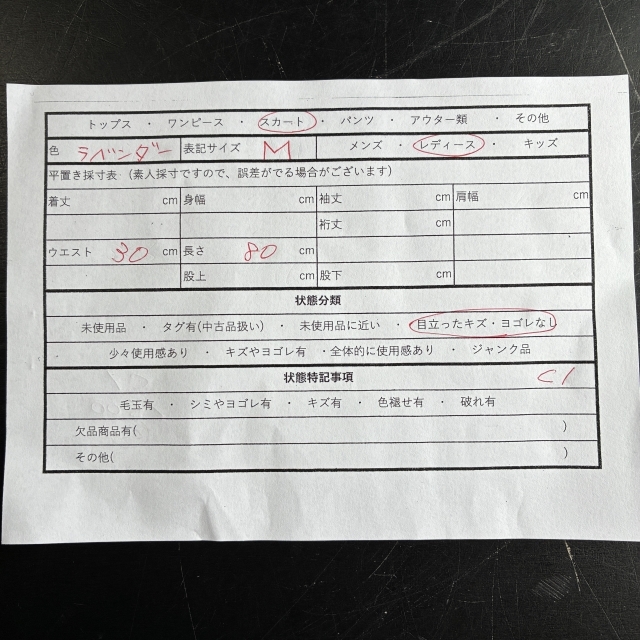 トップス ・ ワンピース ・ スカート ・ パンツ ・ アウター類 ・ その他
色 ラベンダー 表記サイズ M メンズ ・ レディース ・ キッズ
平置き採寸表 (素人採寸ですので、誤差がでる場合がございます)
着丈 cm 身幅 cm 袖丈 cm 肩幅 cm
裄丈 cm
ウエスト 30 cm 長さ 80 cm
股上 cm 股下 cm
状態分類
未使用品 ・ タグ有(中古品扱い) ・ 未使用品に近い ・ 目立ったキズ・ヨゴレなし
少々使用感あり ・ キズやヨゴレ有 ・全体的に使用感あり ・ ジャンク品
状態特記事項 C1
毛玉有 ・ シミやヨゴレ有 ・ キズ有 ・ 色褪せ有 ・ 破れ有
欠品商品有( )
その他( )